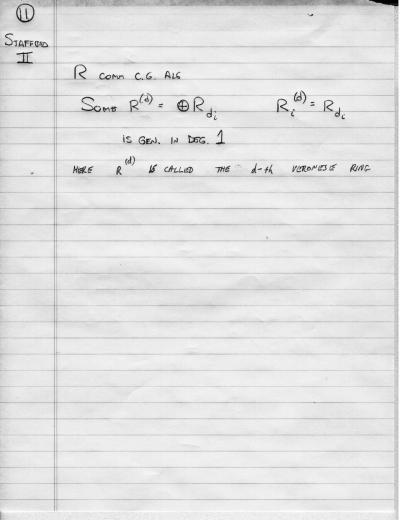 11
STAFFORD
II
R COMM C.G. ALG
SOME R^(d) = ⊕ R_di R_i^(d) = R_di
IS GEN. IN DEG. 1
HERE R^(d) IS CALLED THE d-th VERONESE RING